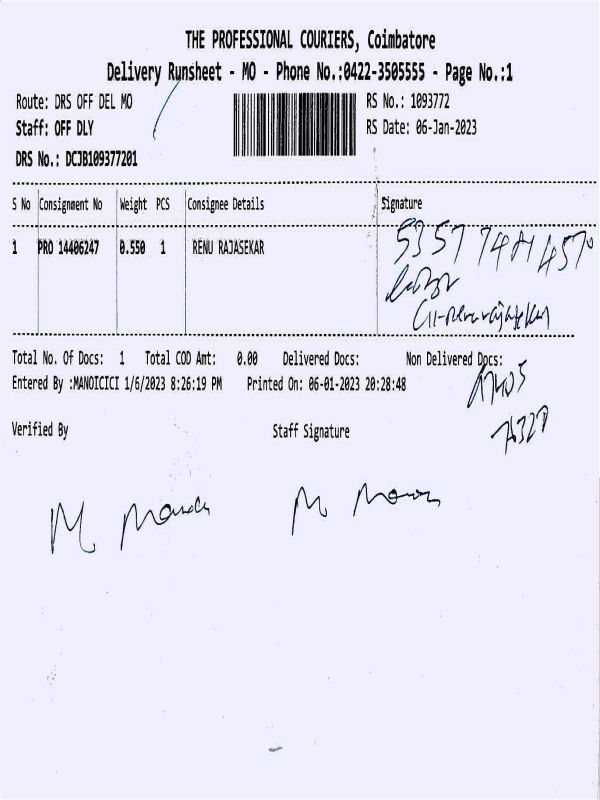 THE PROFESSIONAL COURIERS, Coimbatore
Delivery Runsheet - MO - Phone No.:0422-3505555 - Page No.:1
Route: DRS OFF DEL MO RS No.: 1093772
Staff: OFF DLY RS Date: 06-Jan-2023
DRS No.: DCJB109377201
S No Consignment No Weight PCS Consignee Details Signature
1 PRO 14406247 0.550 1 RENU RAJASEKAR
Total No. Of Docs: 1 Total COD Amt: 0.00 Delivered Docs: Non Delivered Docs:
Entered By :MANOICICI 1/6/2023 8:26:19 PM Printed On: 06-01-2023 20:28:48
Verified By Staff Signature